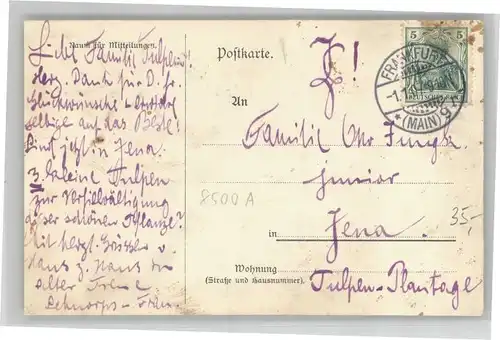 Raum für Mitteilungen.
Liebe Familie Tulpen!
Herzl. Dank für D. fr.
Glückwünsche
selbige auf das Beste!
Sind jetzt in Jena.
3 kleine Tulpen
zur Vervielfältigung
dieser schönen Pflanze?
Mit herzl. Grüssen v.
Haus z. Haus in
alter Treue
Postkarte.
Z!
An
Familie Chr. Jungk
junior
in Jena.
Wohnung
(Straße und Hausnummer).
Tulpen-Plantage
8500 A
35,-
5 5
FRANKFURT
(MAIN) 9